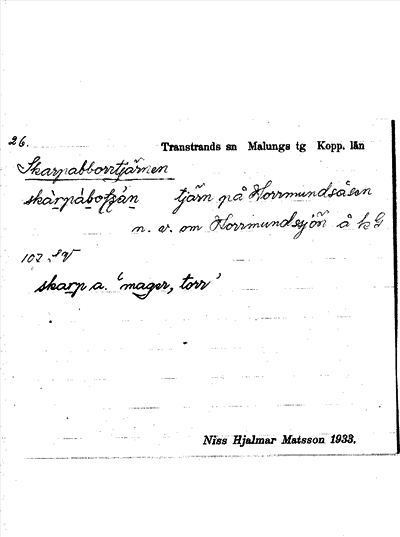 26.
Transtrands sn Malungs tg Kopp. län
Skarpabborrtjärnen
tjärn på Horrmundsåsen
n. v. om Horrmundsjön å kG
102 SV
skarp a. 'mager, torr'
Niss Hjalmar Matsson 1933.